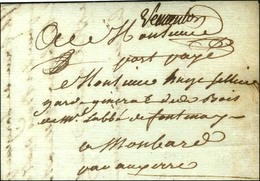 Vermenton
A Monsieur
port payé
Monsieur
garde general des Bois
de Mr. l'abbé de fontenay
a Monbard
par auxerre